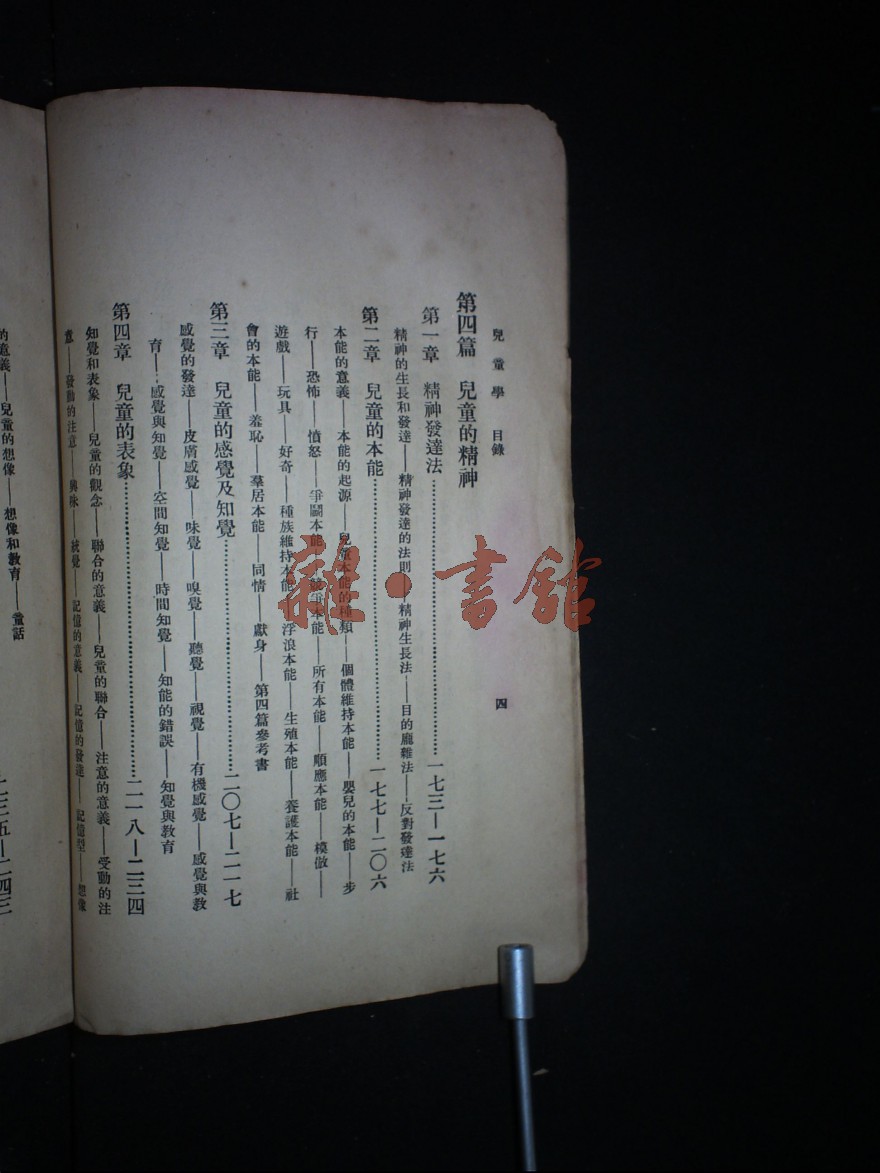 兒童學 目錄 四
第四篇 兒童的精神
第一章 精神發達法……一七三—一七六
精神的生長和發達——精神發達的法則——精神生長法——目的龐雜法——反對發達法
第二章 兒童的本能……一七七—二〇六
本能的意義——本能的起源——兒童本能的種類——個體維持本能——嬰兒的本能——步
行——恐怖——憤怒——爭鬭本能——競爭本能——所有本能——順應本能——模倣——
遊戲——玩具——好奇——種族維持本能——浮浪本能——生殖本能——養護本能——社
會的本能——羞恥——羣居本能——同情——獻身——第四篇參考書
第三章 兒童的感覺及知覺……二〇七—二一七
感覺的發達——皮膚感覺——味覺——嗅覺——聽覺——視覺——有機感覺——感覺與教
育——感覺與知覺——空間知覺——時間知覺——知能的錯誤——知覺與教育
第四章 兒童的表象……二一八—二三四
知覺和表象——兒童的觀念——聯合的意義——兒童的聯合——注意的意義——受動的注
意——發動的注意——興味——統覺——記憶的意義——記憶的發達——記憶型——想像
的意義——兒童的想像——想像和教育——童話
二三五—二四三
雜·書館